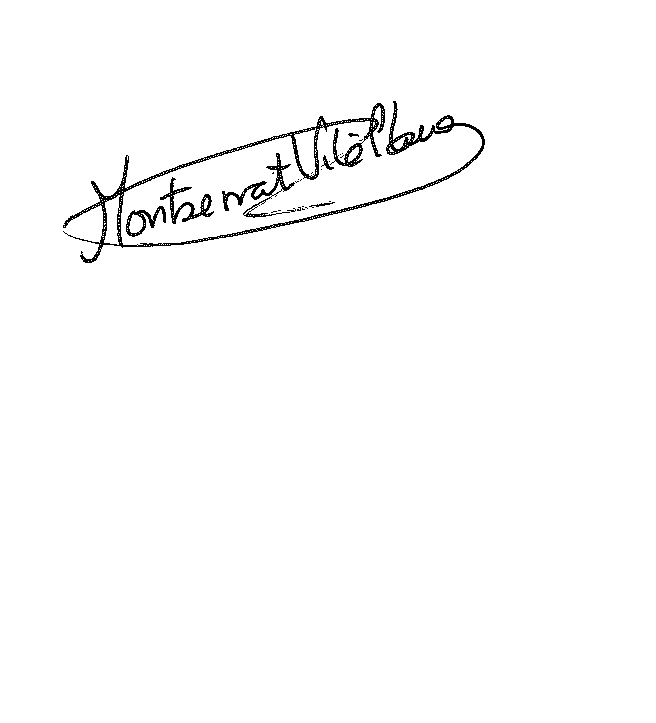 Montserrat Vilà Planas